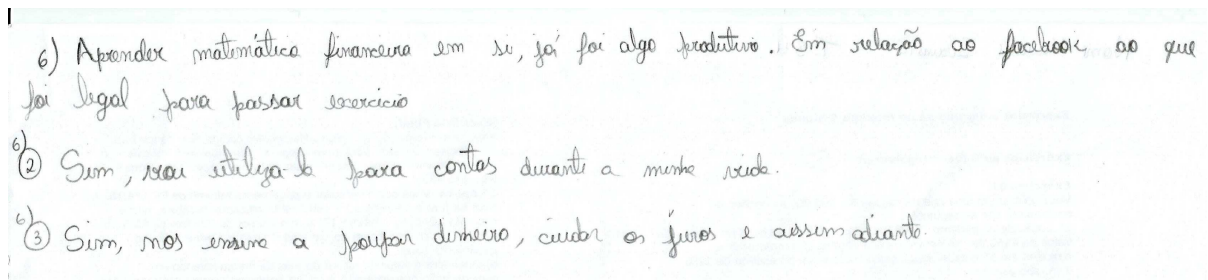 6) Aprender matemática financeira em si, já foi algo produtivo. Em relação ao facebook ao que
foi legal para passar exercicio
6)
② Sim, vou utiliza-la para contas durante a minha vida.
6)
③ Sim, nos ensina a poupar dinheiro, cuidar os juros e assim adiante.